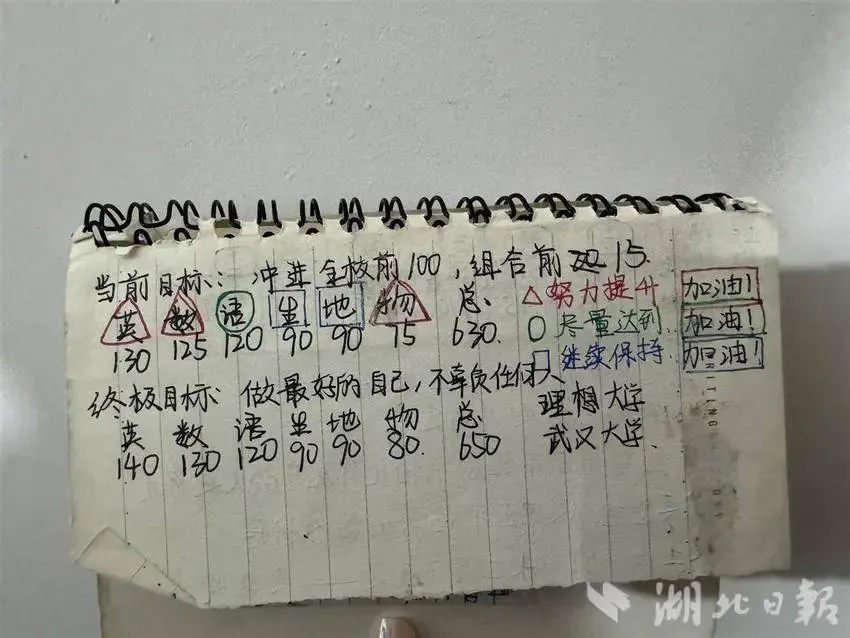 当前目标: 冲进全校前100,组合前15.
英 数 语 生 地 物 总 △努力提升 加油!
130 125 120 90 90 75 630. ○尽量达到.. 加油!
□继续保持.. 加油!
终极目标: 做最好的自己,不辜负任何人
英 数 语 生 地 物 总 理想大学
140 130 120 90 90 80. 650 武汉大学.
湖北日报